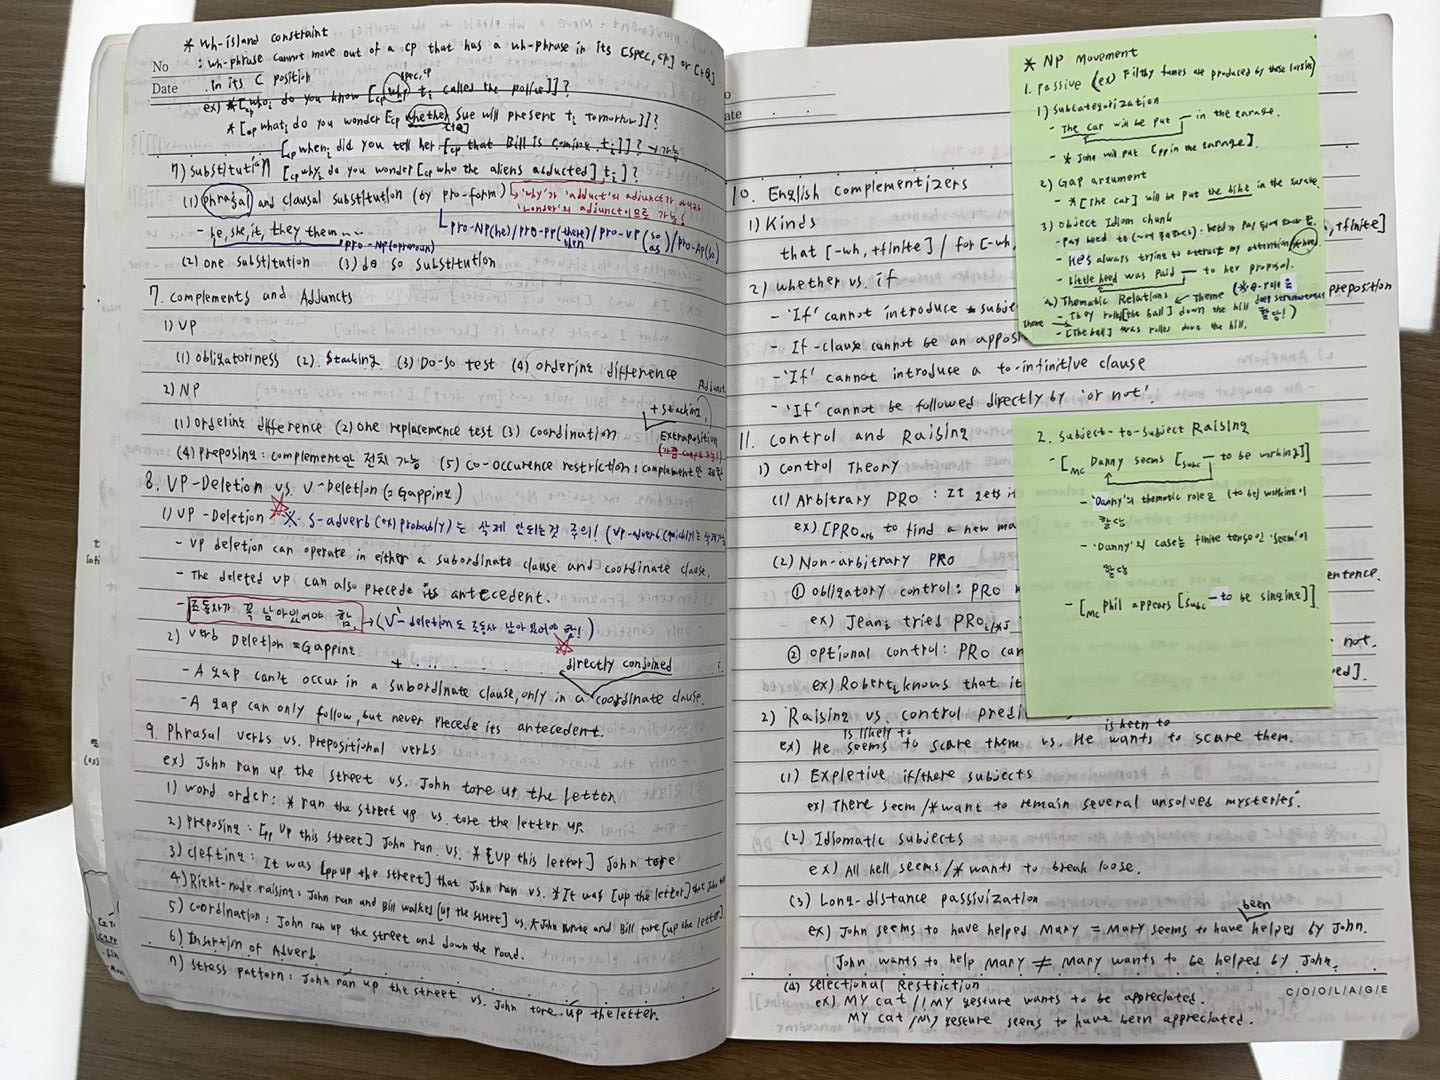 * Wh-island constraint
: wh-phrase cannot move out of a CP that has a wh-phrase in its [spec, CP] or [+Q]
No
Date
in its C position
spec, CP
ex) * [CP whoi do you know [CP why ti called the police]]?
* [CP whati do you wonder [CP whether Sue will present ti tomorrow]]?
[+Q]
[CP wheni did you tell her [CP that Bill is coming ti]]? → 가능
7) Substitution [CP whyi do you wonder [CP who the aliens abducted] ti]?
(1) phrasal and clausal substitution (by pro-form)
'why'가 'abduct'의 adjunct가 아니라
'wonder'의 adjunct이므로 가능!
- he, she, it, they, them ...
pro-NP(pronoun)
pro-NP(he)/pro-PP(there/then)/pro-VP(so/as)/pro-AP(so)
(2) one substitution (3) do so substitution
7. Complements and Adjuncts
1) VP
(1) obligatoriness (2) Stacking (3) Do-so test (4) ordering difference
2) NP
Adjunct
+ Stacking,
Extraposition
(1) ordering difference (2) one replacemence test (3) Coordination
(4) Preposing : complement만 전치 가능 (5) Co-occurence restriction : complement만 제한
8. VP-Deletion vs. V-Deletion (= Gapping)
1) VP-Deletion ※ S-adverb (ex) probably)는 삭제 안되는것 주의! (VP-adverb (quickly)는 삭제가능
- VP deletion can operate in either a subordinate clause and coordinate clause.
- The deleted VP can also precede its antecedent.
- 조동사가 꼭 남아있어야 함 → (V'-deletion도 조동사 남아있어야 함!)
2) Verb Deletion = Gapping
directly conjoined
- A gap can't occur in a subordinate clause, only in a coordinate clause.
- A gap can only follow, but never precede its antecedent.
9. Phrasal verbs vs. Prepositional verbs
ex) John ran up the street vs. John tore up the letter
1) word order : * ran the street up vs. tore the letter up
2) Preposing : [PP up this street] John ran. vs. * [up this letter] John tore
3) Clefting : It was [PP up the street] that John ran vs. * It was [up the letter] that John
4) Right-node raising : John ran and Bill walked [up the street] vs. * John wrote and Bill tore [up the letter]
5) Coordination : John ran up the street and down the road.
6) Insertion of Adverb
7) Stress pattern : John ran up the street vs. John tore up the letter.
10. English complementizers
1) Kinds
that [-wh, +finite] / for [-wh,
, +finite]
2) whether vs. if
- 'If' cannot introduce * subje
- If-clause cannot be an appos
preposition
- 'If' cannot introduce a to-infinitive clause
- 'If' cannot be followed directly by 'or not'.
11. Control and Raising
1) Control Theory
(1) Arbitrary PRO : It gets i
ex) [PROarb to find a new ma
(2) Non-arbitrary PRO
① obligatory control : PRO
entence.
ex) Jeani tried PROi/*j
② optional control : PRO can
not.
ex) Roberti knows that it
ed].
2) Raising vs. control predi
is likely to
is keen to
ex) He seems to scare them vs. He wants to scare them.
(1) Expletive it/there subjects
ex) There seem/*want to remain several unsolved mysteries.
(2) Idiomatic subjects
ex) All hell seems/*wants to break loose.
(3) Long-distance passivization
been
ex) John seems to have helped Mary = Mary seems to have helped by John.
John wants to help Mary ≠ Mary wants to be helped by John.
(4) Selectional Restriction
ex) My cat/!My gesture wants to be appreciated.
My cat/My gesture seems to have been appreciated.
C/O/O/L/A/G/E
* NP Movement
1. Passive (ex) Filthy fumes are produced by these lorries)
1) Subcategorization
- The car will be put — in the garage.
- * John will put [PP in the garage].
2) Gap argument
- * [The car] will be put the bike in the garage.
3) Object Idiom chunk
- He's always trying to attract my attention
- Little heed was paid — to her proposal.
4) Thematic Relations ← Theme
- They rolled [the ball] down the hill
theme
- [The ball] was rolled down the hill.
2. Subject-to-Subject Raising
- [MC Danny seems [SubC — to be working]]
- 'Danny'의 thematic role은 (to be) working이
할당
- 'Danny'의 case는 finite tense인 'seem'이
할당
- [MC Phil appears [SubC — to be singing]]